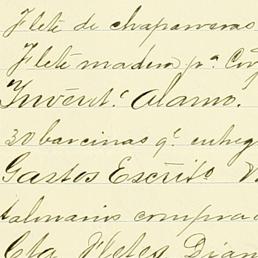 Flete de chaparreras
Flete madera pa. Cor
Invent.o Alamo.
30 barcinas q. entreg
Gastos Escrito
talonarios comprad
Cta Fletes Dian